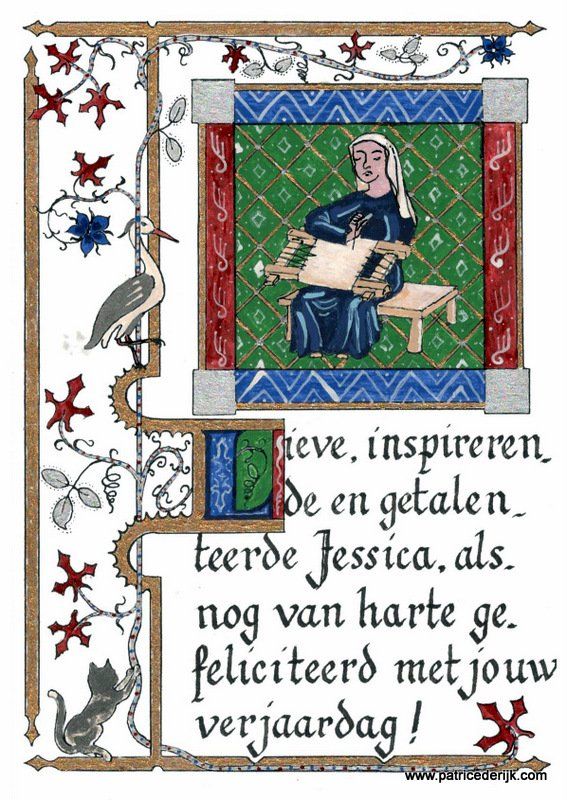 Lieve, inspireren-
de en getalen-
teerde Jessica, als-
nog van harte ge-
feliciteerd met jouw
verjaardag!
www.patricederijk.com